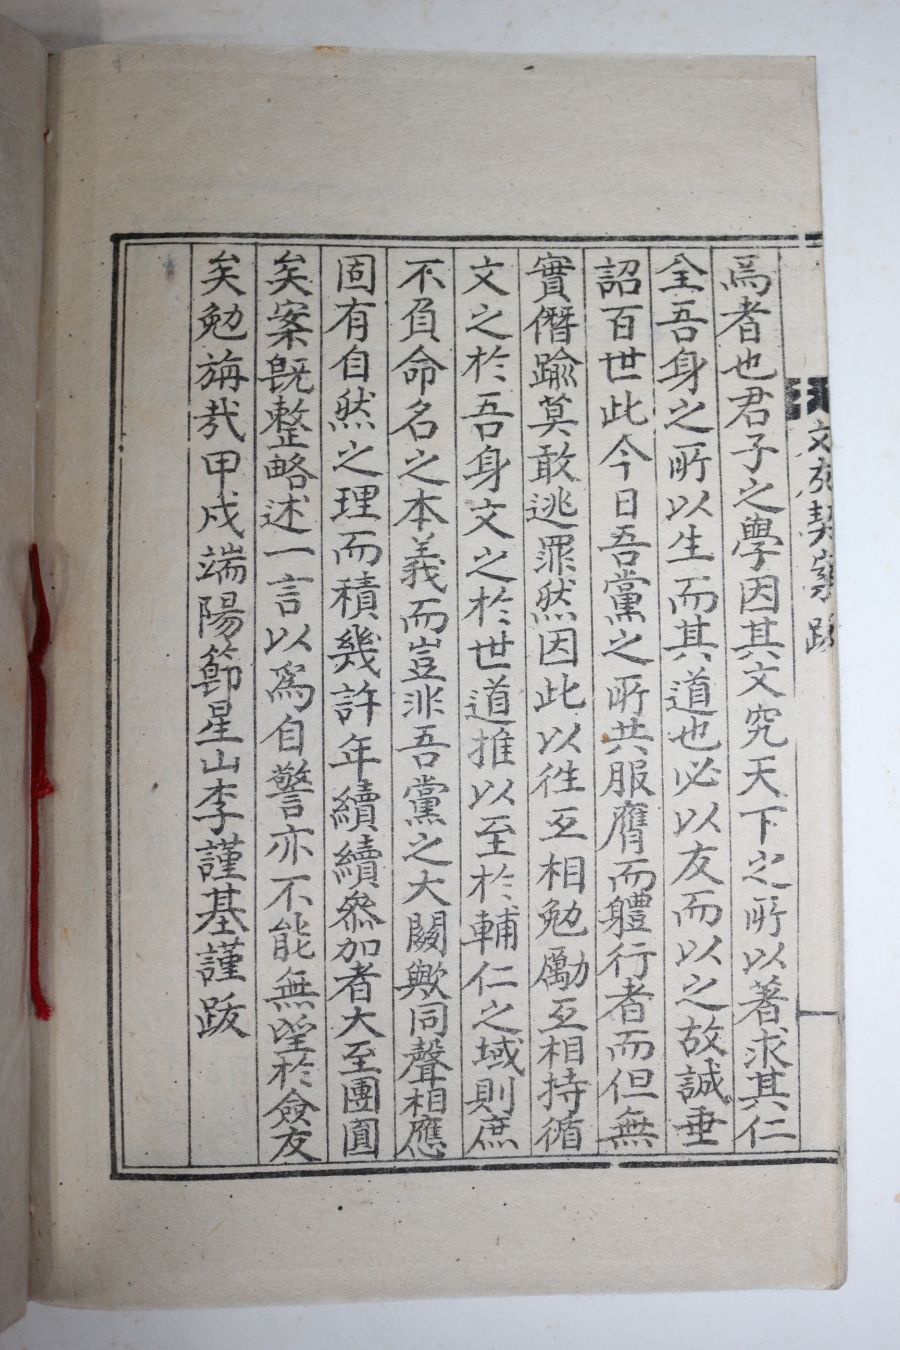 文友契案跋
爲者也君子之學因其文究天下之所以著求其仁
全吾身之所以生而其道也必以友而以之故誠垂
詔百世此今日吾黨之所共服膺而軆行者而但無
實僭踰莫敢逃罪然因此以徃互相勉勵互相持循
文之於吾身文之於世道推以至於輔仁之域則庶
不負命名之本義而豈非吾黨之大闕歟同聲相應
固有自然之理而積幾許年續續叅加者大至團圓
矣案旣整略述一言以爲自警亦不能無望於僉友
矣勉旃哉甲戌端陽節星山李謹基謹跋